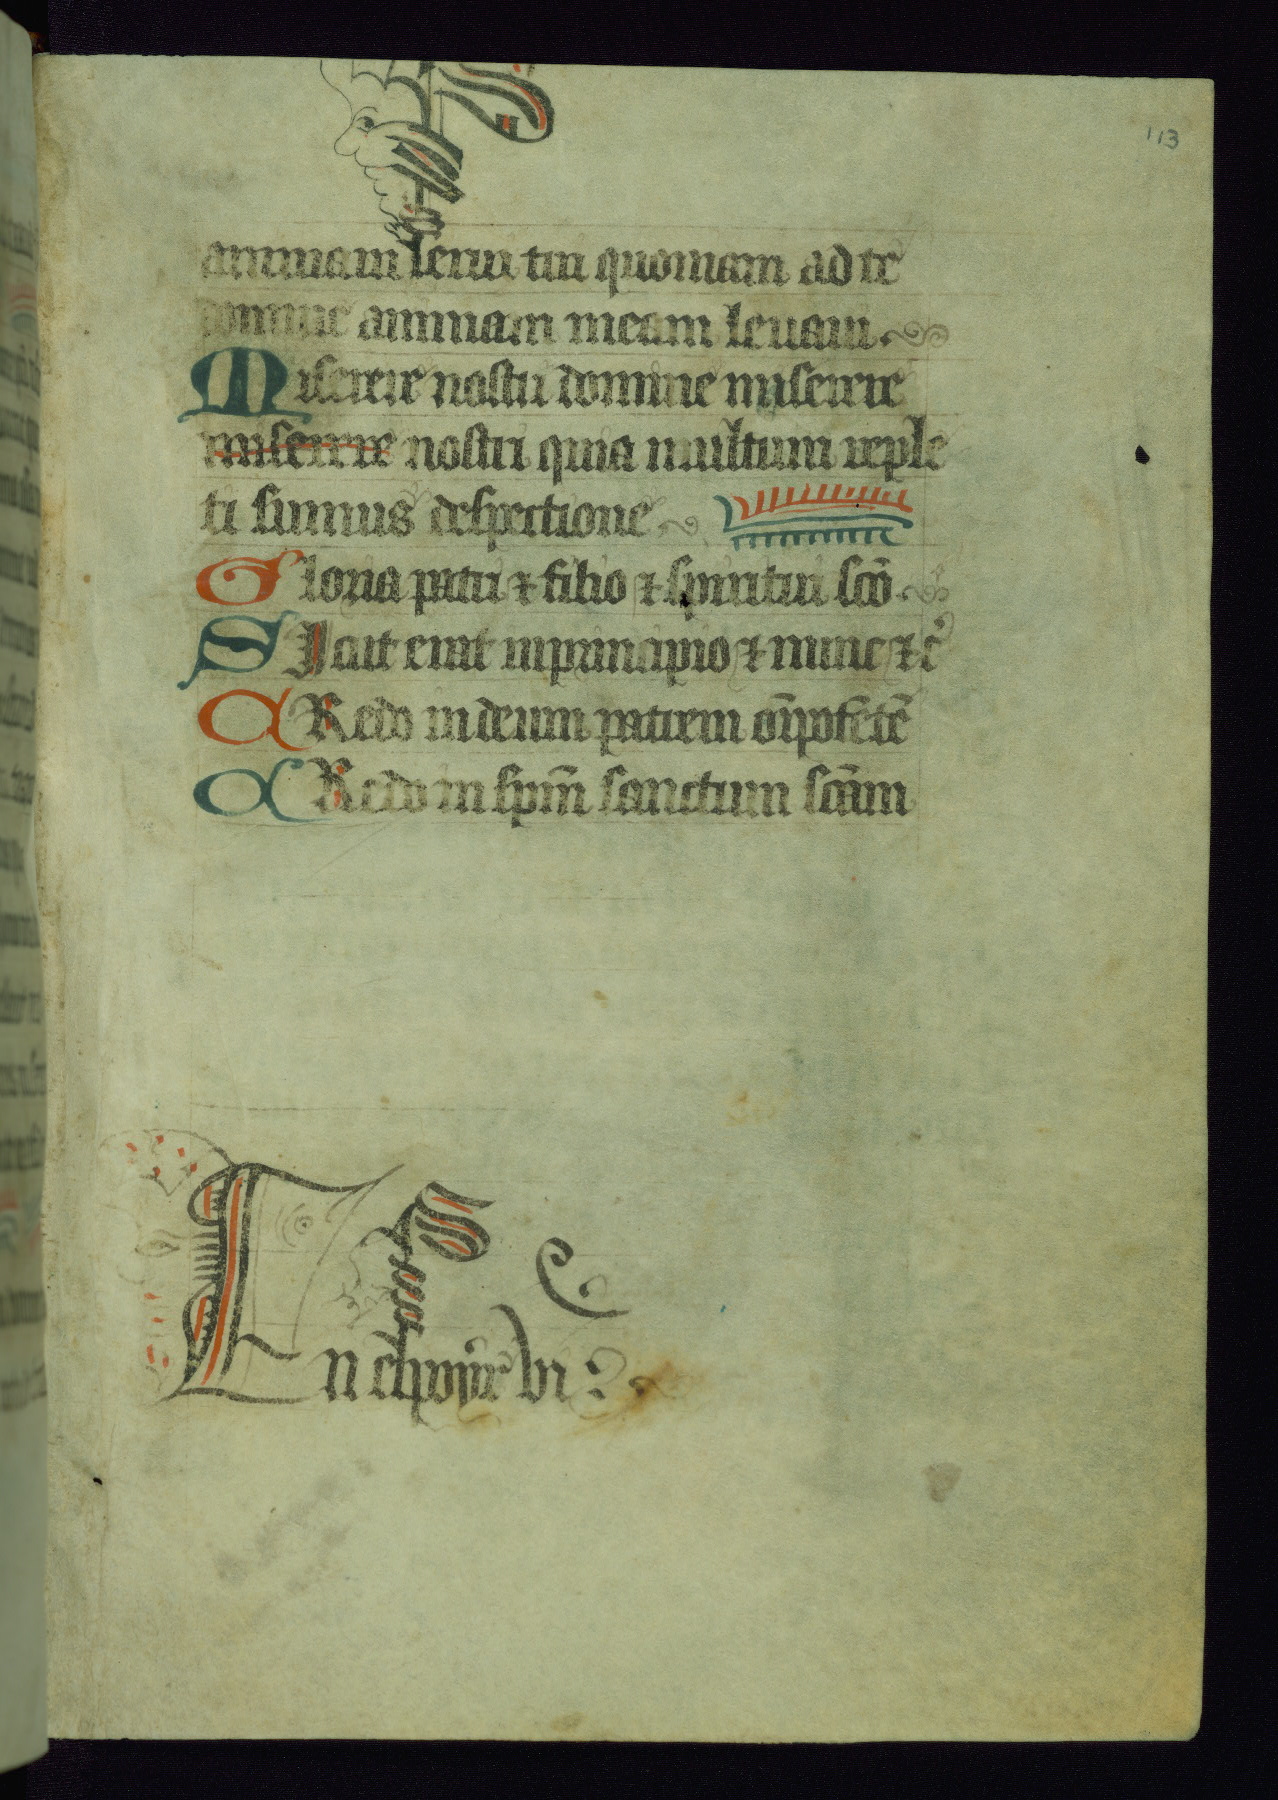 113
animam serui tui quoniam ad te
domine animam meam leuaui
Miserere nostri domine miserere
miserere nostri quia multum reple
ti sumus despectione
Gloria patri ⁊ filio ⁊ spiritui sc̄o
Sicut erat in principio ⁊ nunc ⁊ c̾
CRedo in deum patrem om̄ipotētē
CRedo in sp̄m sanctum sc̄am